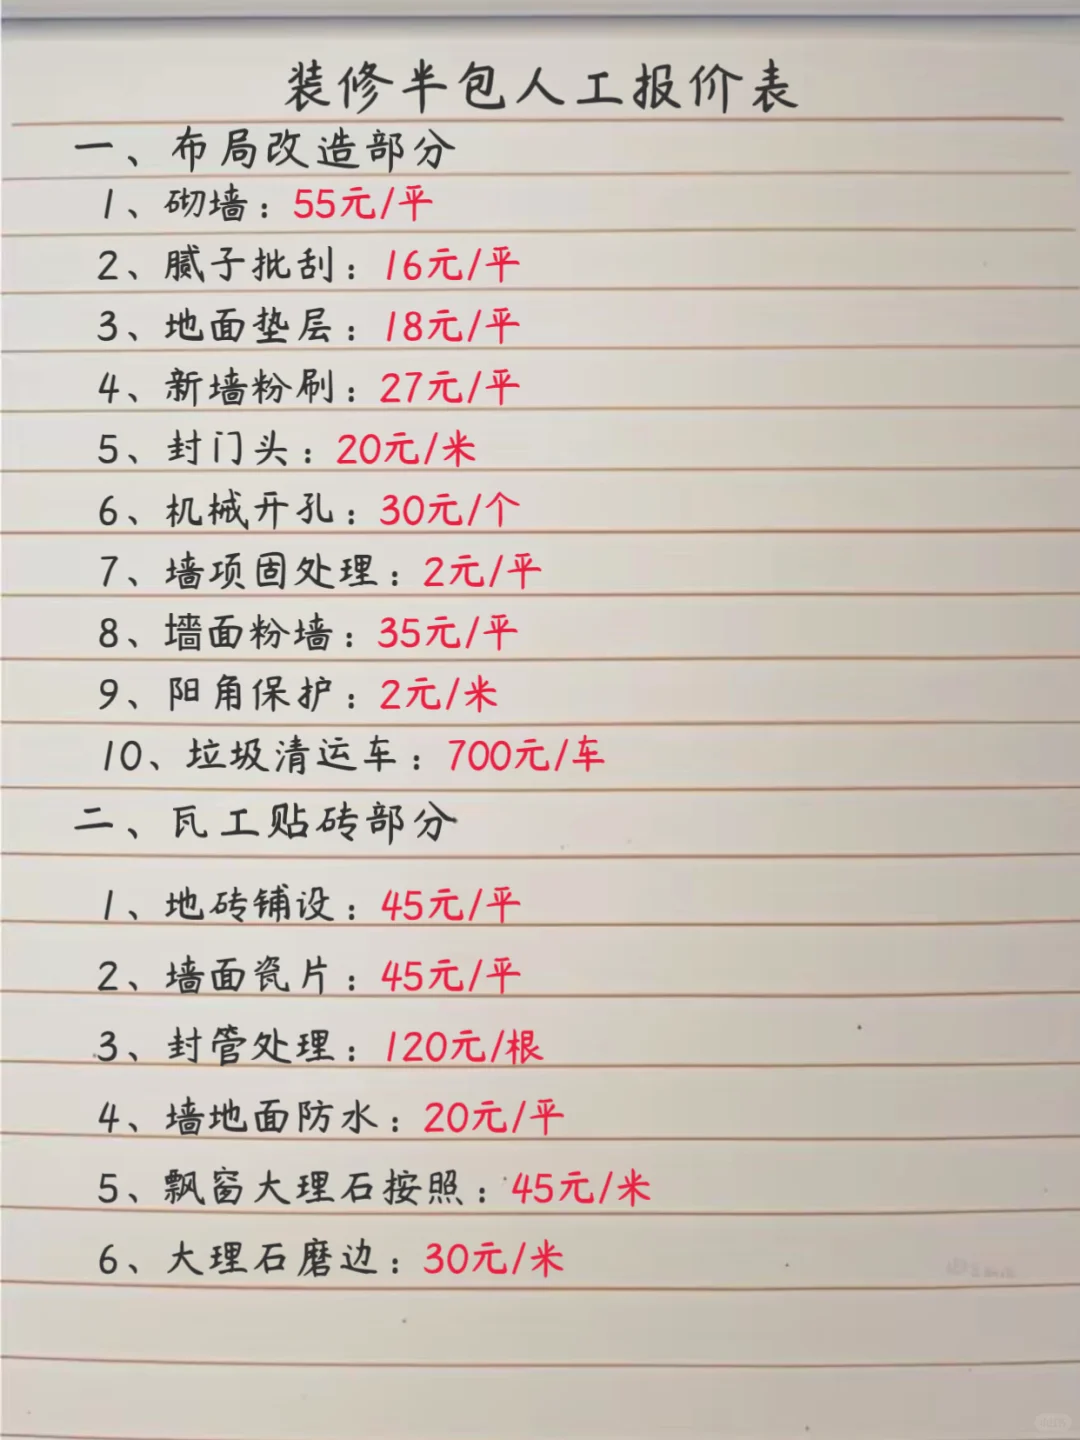 装修半包人工报价表
一、布局改造部分
1、砌墙：55元/平
2、腻子批刮：16元/平
3、地面垫层：18元/平
4、新墙粉刷：27元/平
5、封门头：20元/米
6、机械开孔：30元/个
7、墙项固处理：2元/平
8、墙面粉墙：35元/平
9、阳角保护：2元/米
10、垃圾清运车：700元/车
二、瓦工贴砖部分
1、地砖铺设：45元/平
2、墙面瓷片：45元/平
3、封管处理：120元/根
4、墙地面防水：20元/平
5、飘窗大理石按照：45元/米
6、大理石磨边：30元/米